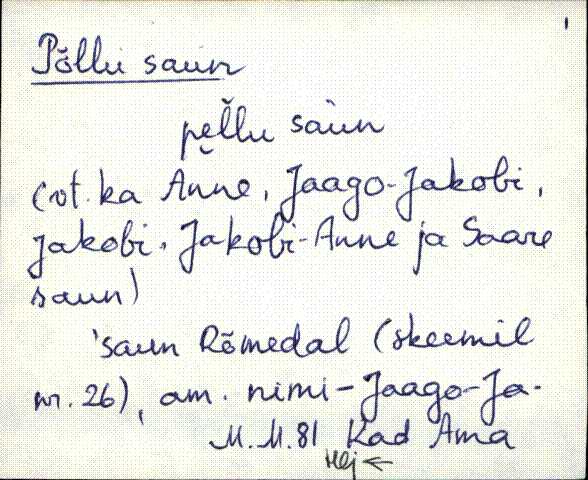 Põllu saun
pe̮l̆lu sàun
(vt. ka Anne, Jaago-Jakobi,
Jakobi, Jakobi-Anne ja Saare
saun)
'saun Rõmedal (skeemil
nr. 26), am. nimi - Jaago-Ja-
M.M.81 Kad Ama
Hlj ←